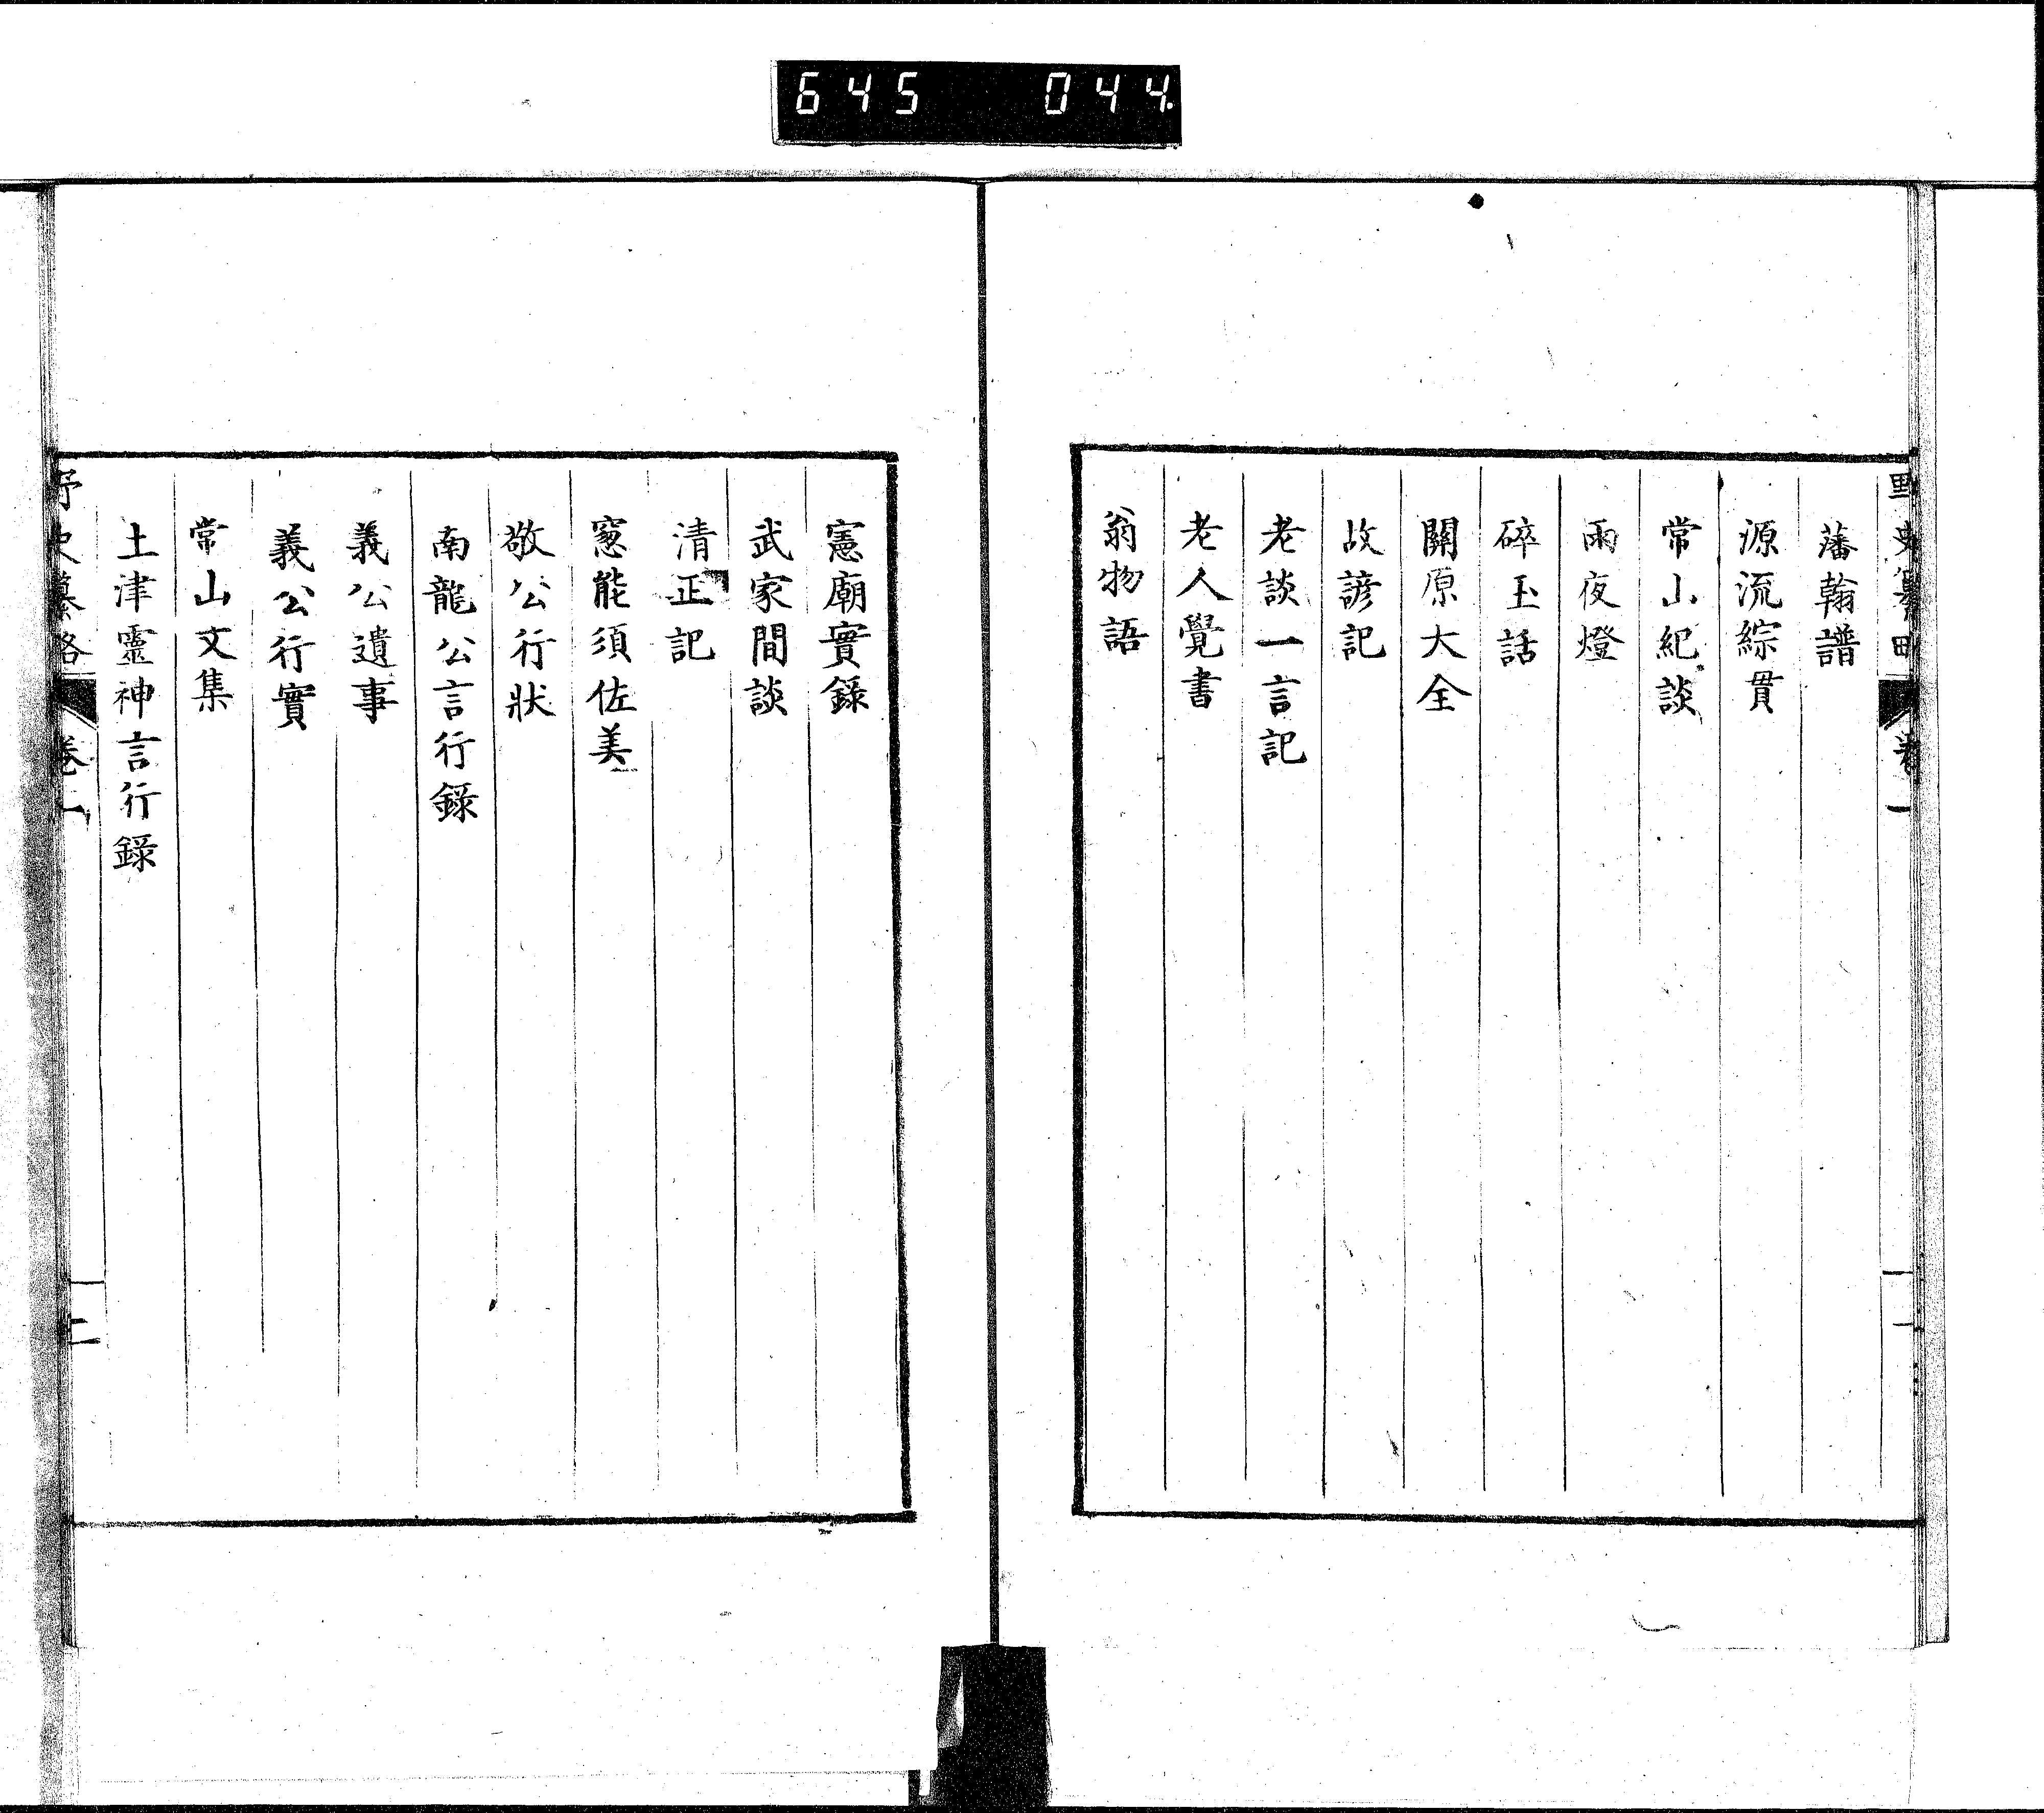 645 044
野史纂略 卷一 一
藩翰譜
源流綜貫
常山紀談
雨夜燈
碎玉話
關原大全
故諺記
老談一言記
老人覺書
翁物語
憲廟實錄
武家閒談
清正記
窓能須佐美
敬公行狀
南龍公言行錄
義公遺事
義公行實
常山文集
土津靈神言行錄
野史纂略 卷一 二